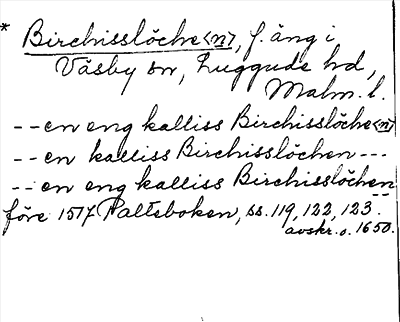 * Birchisslöche<n>, f. äng i
Väsby sn, Luggude hd,
Malm. l.
-- en eng kalliss Birchisslöche<n>
-- en kalliss Birchisslöchen ---
-- en eng kalliss Birchisslöchen --
före 1517 Palteboken, ss. 119, 122, 123.
avskr. o. 1650.